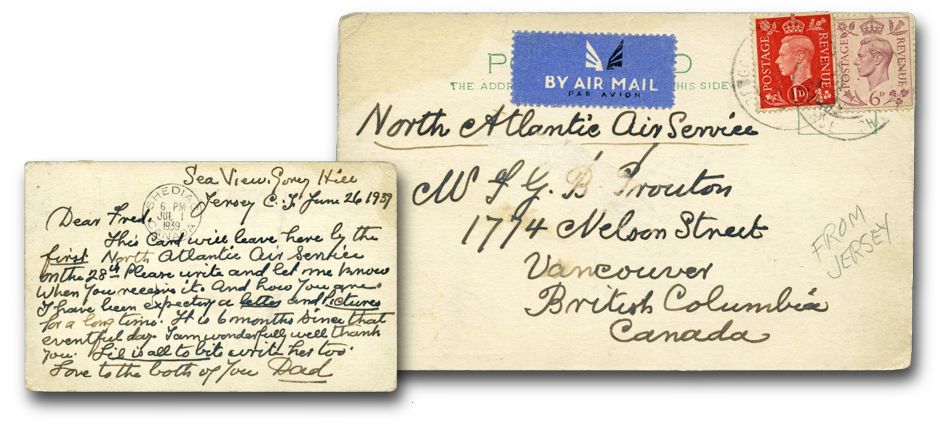 Sea View. Gorey Hill
Jersey C.I. June 26 1939
SHEDIAC
6 PM
JUL 1
1939
CANADA
Dear Fred.
This Card will leave here by the
first North Atlantic Air Service
on the 28th Please write and let me know
when you receive it. And how you are.
I have been expecting a letter and Pictures
for a long time. It is 6 months since that
eventful day. I am wonderfully well thank
you. Lil is all to bits write her too.
Love to the both of you Dad
BY AIR MAIL
PAR AVION
THE ADDRE HIS SIDE
POSTAGE REVENUE
1D
POSTAGE REVENUE
6D
North Atlantic Air Service
Mr F G. B. Prouton
1774 Nelson Street
Vancouver
British Columbia
Canada
FROM
JERSEY